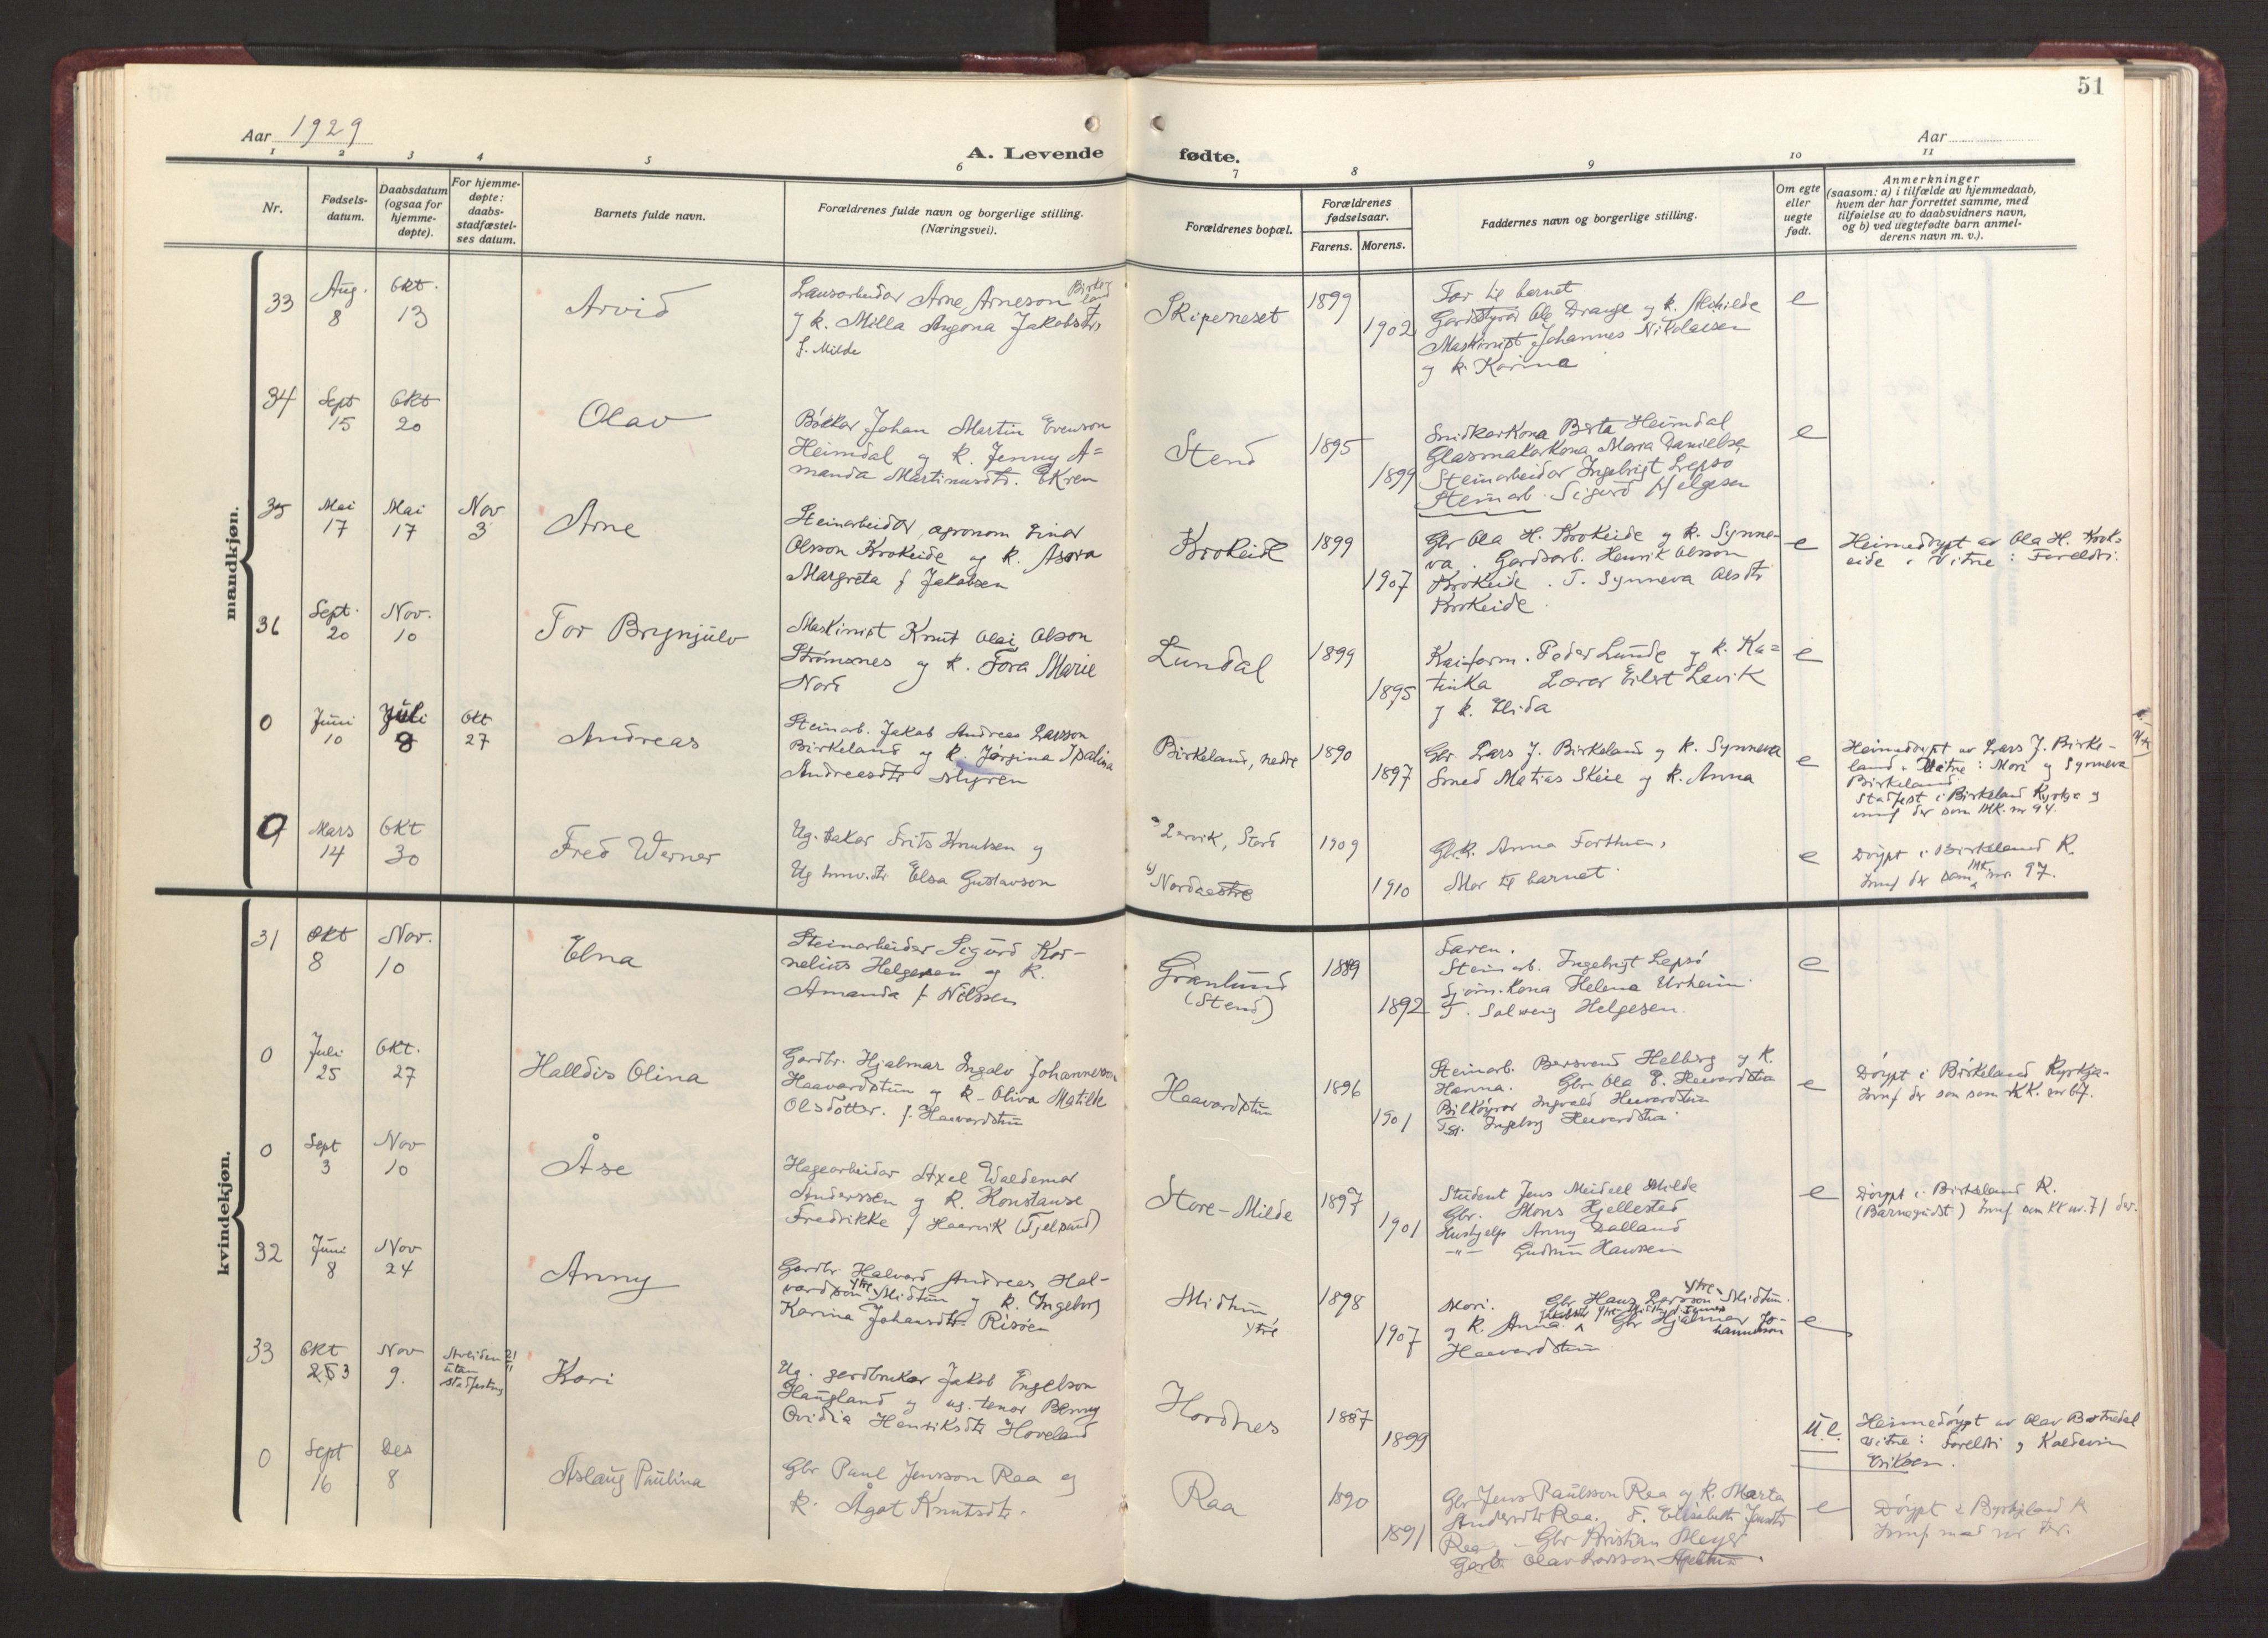 51
Aar 1929
Aar
A. Levende fødte.
1 2 3 4 5 6 7 8 9 10 11
Nr.
Fødsels-
datum.
Daabsdatum
(ogsaa for
hjemme-
døpte).
For hjemme-
døpte:
daabs-
stadfæstel-
ses datum.
Barnets fulde navn.
Forældrenes fulde navn og borgerlige stilling.
(Næringsvei).
Forældrenes bopæl.
Forældrenes
fødselsaar.
Farens. Morens.
Faddernes navn og borgerlige stilling.
Om egte
eller
uegte
født.
Anmerkninger
(saasom: a) i tilfælde av hjemmedaab,
hvem der har forrettet samme, med
tilføielse av to daabsvidners navn,
og b) ved uegtefødte barn anmel-
derens navn m. v.).
mandkjøn.
33 Aug. 8 Okt. 13 Arvid
Arne Arneson Birkeland
g k. Milla Jakobsdtr
f. Milde
Skiperneset 1899 1902
Far til barnet
Ole Drange g k.
Maskinist Johannes Nikolaisen
g k. Karina
e
34 Sept 15 Okt 20 Olav
Johan Martin Evenson
Heimdal og k. Jenny A=
manda Martinusdtr. Ekren
Stend 1895 1899
Berta Heimdal
Glasmakarkona Maria Danielsen
Steinarbeidar Ingebrigt Lepsö
Steinarb. Sigurd Helgesen
e
35 Mai 17 Mai 17 Nov 3 Arne
Steinarbeidar, agronom Einar
Olsson Krokeide og k. Asora
Margreta f Jakobsen
Krokeide 1899 1907
Gbr Ola H. Krokeide g k. Synne-
va. Gardsarb. Henrik Olsson
Krokeide. T. Synneva Olsdtr
Krokeide.
e
Heimedöypt av Ola H. Krok-
eide. Vitne: Foreldri.
36 Sept. 20 Nov. 10 Tor Brynjulv
Maskinist Knut Olai Olson
Strömsnes og k. Tora Marie
Nord
Lundal 1899 1895
Kaiform. Peder Lunde g k. Ka=
tinka Lærer Eilert Levik
g k.
e
0 Juni 10 Juli 8 Okt 27 Andreas
Steinarb. Jakob Andreas Larsson
Birkeland og k. Jørgina
Andreasdtr Myren
Birkeland, nedre 1890 1897
Gbr. Lars J. Birkeland g k. Synneva
Smed Matias Skeie og k. Anna
e
Heimedöypt av Lars J. Birke-
land. Vitne: Mori og Synneva
Birkeland.
Stadfest i Birkeland Kyrkja og
der som MK. nr 94.
0 Mars 14 Okt 30 Fred Werner
Ug. bakar Frits Knutsen og
Ug Elsa Gustavson
a) Lervik, Stord
b) Nordaestre 1909 1910
Gbrk. Anna
Mor til barnet
e
Döypt i Birkeland K.
Innf der som MK nr 97.
kvindekjøn.
31 Okt 8 Nov. 10 Elna
Steinarbeidar Sigurd Kor-
nelius Helgesen og k.
Amanda f Nilssen
Granlund
(Stend) 1889 1892
Faren.
Steinarb. Ingebrigt Lepsö
kona Helena Urheim.
T. Solveig Helgesen.
e
0 Juli 25 Okt. 27 Halldis Olina
Gardbr. Hjalmar Ingolv Johannesson
Haavardstun og k. Oliva Matilde
Olsdotter. f. Haavardstun
Haavardstun 1896 1901
Steinarb. Helberg og k.
Hanna. Gbr. Ola
Bilköyrar Ingvald
Ingeborg
e
Döypt i Birkeland Kyrkja.
Innf der som KK. nr 67.
0 Sept 3 Nov 10 Åse
Hagearbeidar Axel Waldemar
Anderssen og k. Konstanse
Fredrikke f Haarvik (Tjelsund)
Store-Milde 1897 1901
Student Jens Meidell Milde
Gbr. Mons Hjellestad
Hushjelp Anny Dalland
-"- Gudrun Hansen
e
Döypt i Birkeland K.
(Barnegudst) Innf som KK nr. 71 der.
32 Juni 8 Nov 24 Anny
Gardbr. Halvard Andreas Hal-
vardson ytre Midtun g k. Ingeborg
Karina Johansdtr. Risöen
Midtun
ytre 1898 1907
Mori. Gbr Hans Larsson ytre Midtun.
og k. Anna Gbr Hjalmar Jo-
hannesson
Haavardstun
e
33 Okt 23 Nov 9. utan
stadfesting Kari
Ug. gardbrukar Jakob Engelson
Haugland og ug. Benny
Ovidia Henriksdtr Hoveland
Hordnes 1887 1899
u.e.
Heimedöypt av Olav
Vitne: Foreldri g
Eriksen.
0 Sept 16 Des 8 Aslaug Paulina
Gbr Paul Jensson Raa og
k. Ågot Knutsdtr.
Raa 1890 1891
Gbr Jens Paulsson Raa og k. Marta
Raa. F. Elisabeth Jensdtr
Raa - Gbr Kristian Meyer
Olav Larsson Apeltun.
e
Döypt i Byrkjeland K
Innf med nr der.